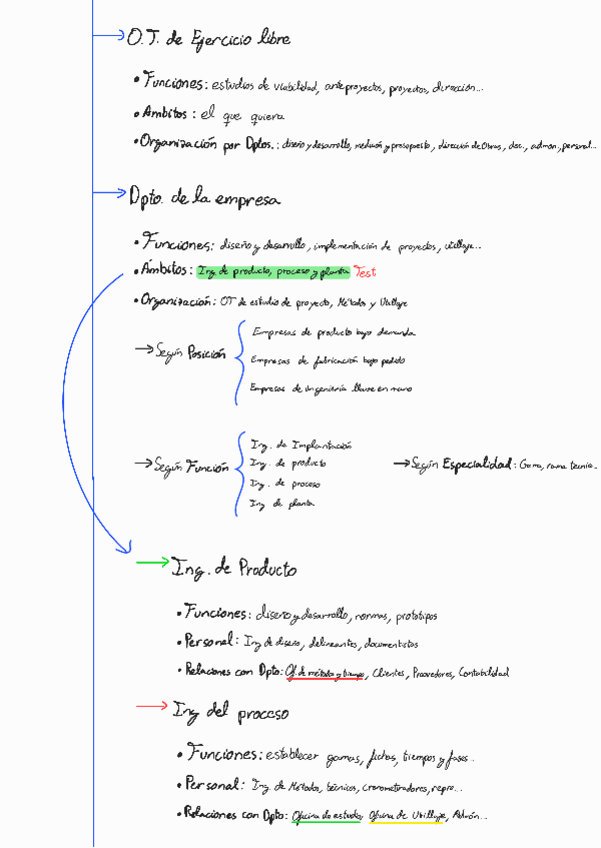 O.T. de Ejercicio libre
• Funciones: estudios de viabilidad, anteproyectos, proyectos, dirección...
• Ambitos: el que quiera
• Organización por Dptos.: diseño y desarrollo, medición y presupuesto, dirección de Obras, doc., admon, personal...
Dpto. de la empresa
• Funciones: diseño y desarrollo, implementación de proyectos, utillaje...
• Ámbitos: Ing. de producto, proceso y planta Test
• Organización: OT de estudio de proyecto, Métodos y Utillaje
→ Según Posición
Empresas de producto bajo demanda
Empresas de fabricación bajo pedido
Empresas de ingeniería llave en mano
→ Según Función
Ing. de Implantación
Ing. de producto
Ing. de proceso
Ing de planta
→ Según Especialidad: Gama, rama técnic..
Ing. de Producto
• Funciones: diseño y desarrollo, normas, prototipos
• Personal: Ing de diseño, delineantes, documentistas
• Relaciones con Dpto: Of. de método y tiempo, Clientes, Proveedores, Contabilidad
Ing del proceso
• Funciones: establecer gamas, fichas, tiempos y fases..
• Personal: Ing. de Métodos, técnicos, cronometradores, repro...
• Relaciones con Dpto: Oficina de estudio, Oficina de Utillaje,